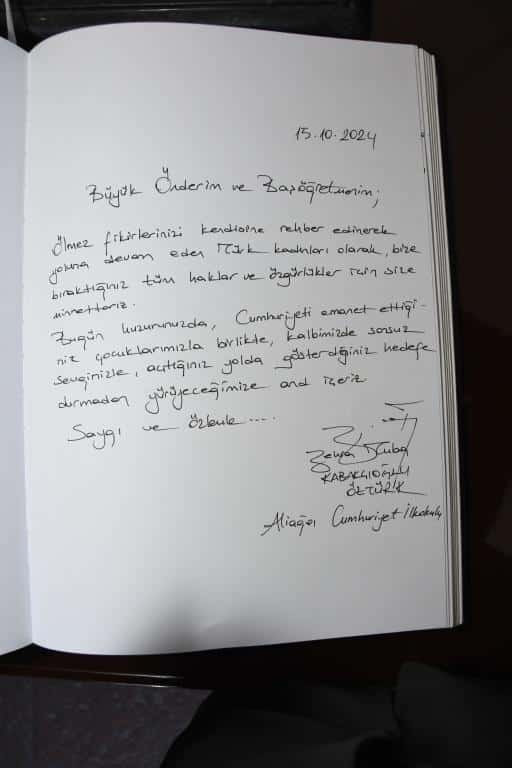 15.10.2024
Büyük Önderim ve Başöğretmenim;
Ölmez fikirlerinizi kendisine rehber edinerek
yoluna devam eden Türk kadınları olarak, bize
bıraktığınız tüm haklar ve özgürlükler için size
minnettarız.
Bugün huzurunuzda, Cumhuriyeti emanet ettiği-
niz çocuklarımızla birlikte, kalbimizde sonsuz
sevginizle, açtığınız yolda gösterdiğiniz hedefe
durmadan yürüyeceğimize and içeriz
Saygı ve özlemle....
Zeynep Tuba
KABAKÇIOĞLU
ÖZTÜRK
Aliağa Cumhuriyet İlkokulu